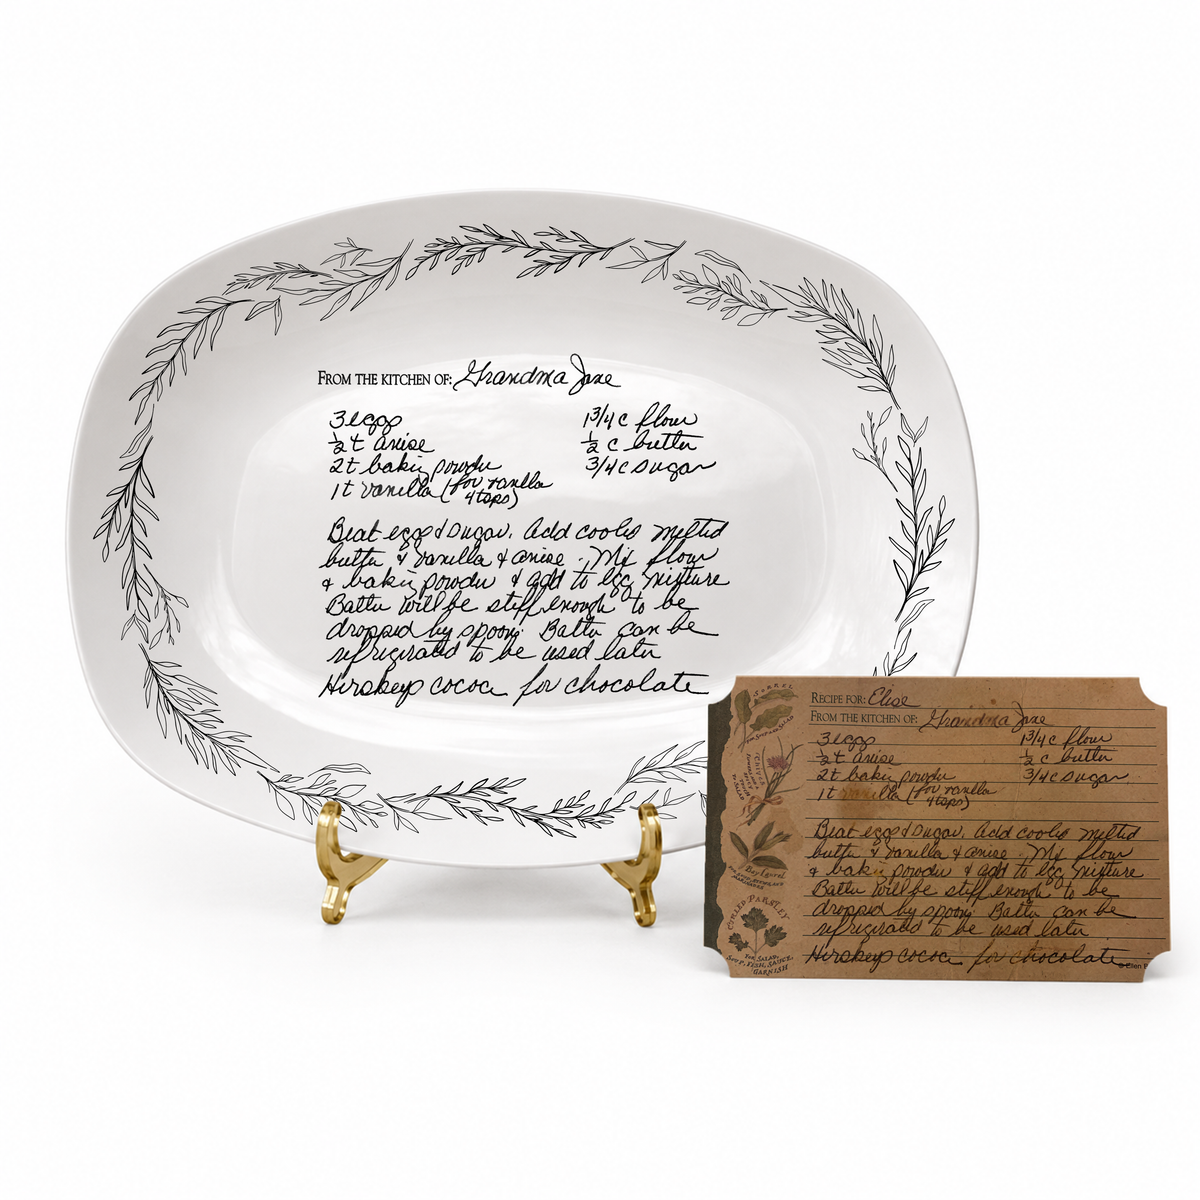 FROM THE KITCHEN OF: Grandma Jane
3 eggs
1 3/4 c flour
1/2 t anise
1/2 c butter
2 t baking powder
3/4 c sugar
1 t vanilla (for vanilla
4 tsps)
Beat eggs & sugar. Add cooled melted
butter & vanilla & anise. Mix flour
& baking powder & add to egg mixture
Batter will be stiff enough to be
dropped by spoon. Batter can be
refrigerated to be used later
Hersheys cocoa for chocolate
RECIPE FOR: Elise
FROM THE KITCHEN OF: Grandma Jane
3 eggs
1 3/4 c flour
1/2 t anise
1/2 c butter
2 t baking powder
3/4 c sugar
1 t vanilla (for vanilla
4 tsps)
Beat eggs & sugar. Add cooled melted
butter & vanilla & anise. Mix flour
& baking powder & add to egg mixture
Batter will be stiff enough to be
dropped by spoon. Batter can be
refrigerated to be used later
Hersheys cocoa for chocolate
SORREL
FOR SOUP AND SALAD
CHIVES
Bay Laurel
CURLED PARSLEY
FOR SALAD,
SOUP, FISH, SAUCE,
GARNISH
© Ellen